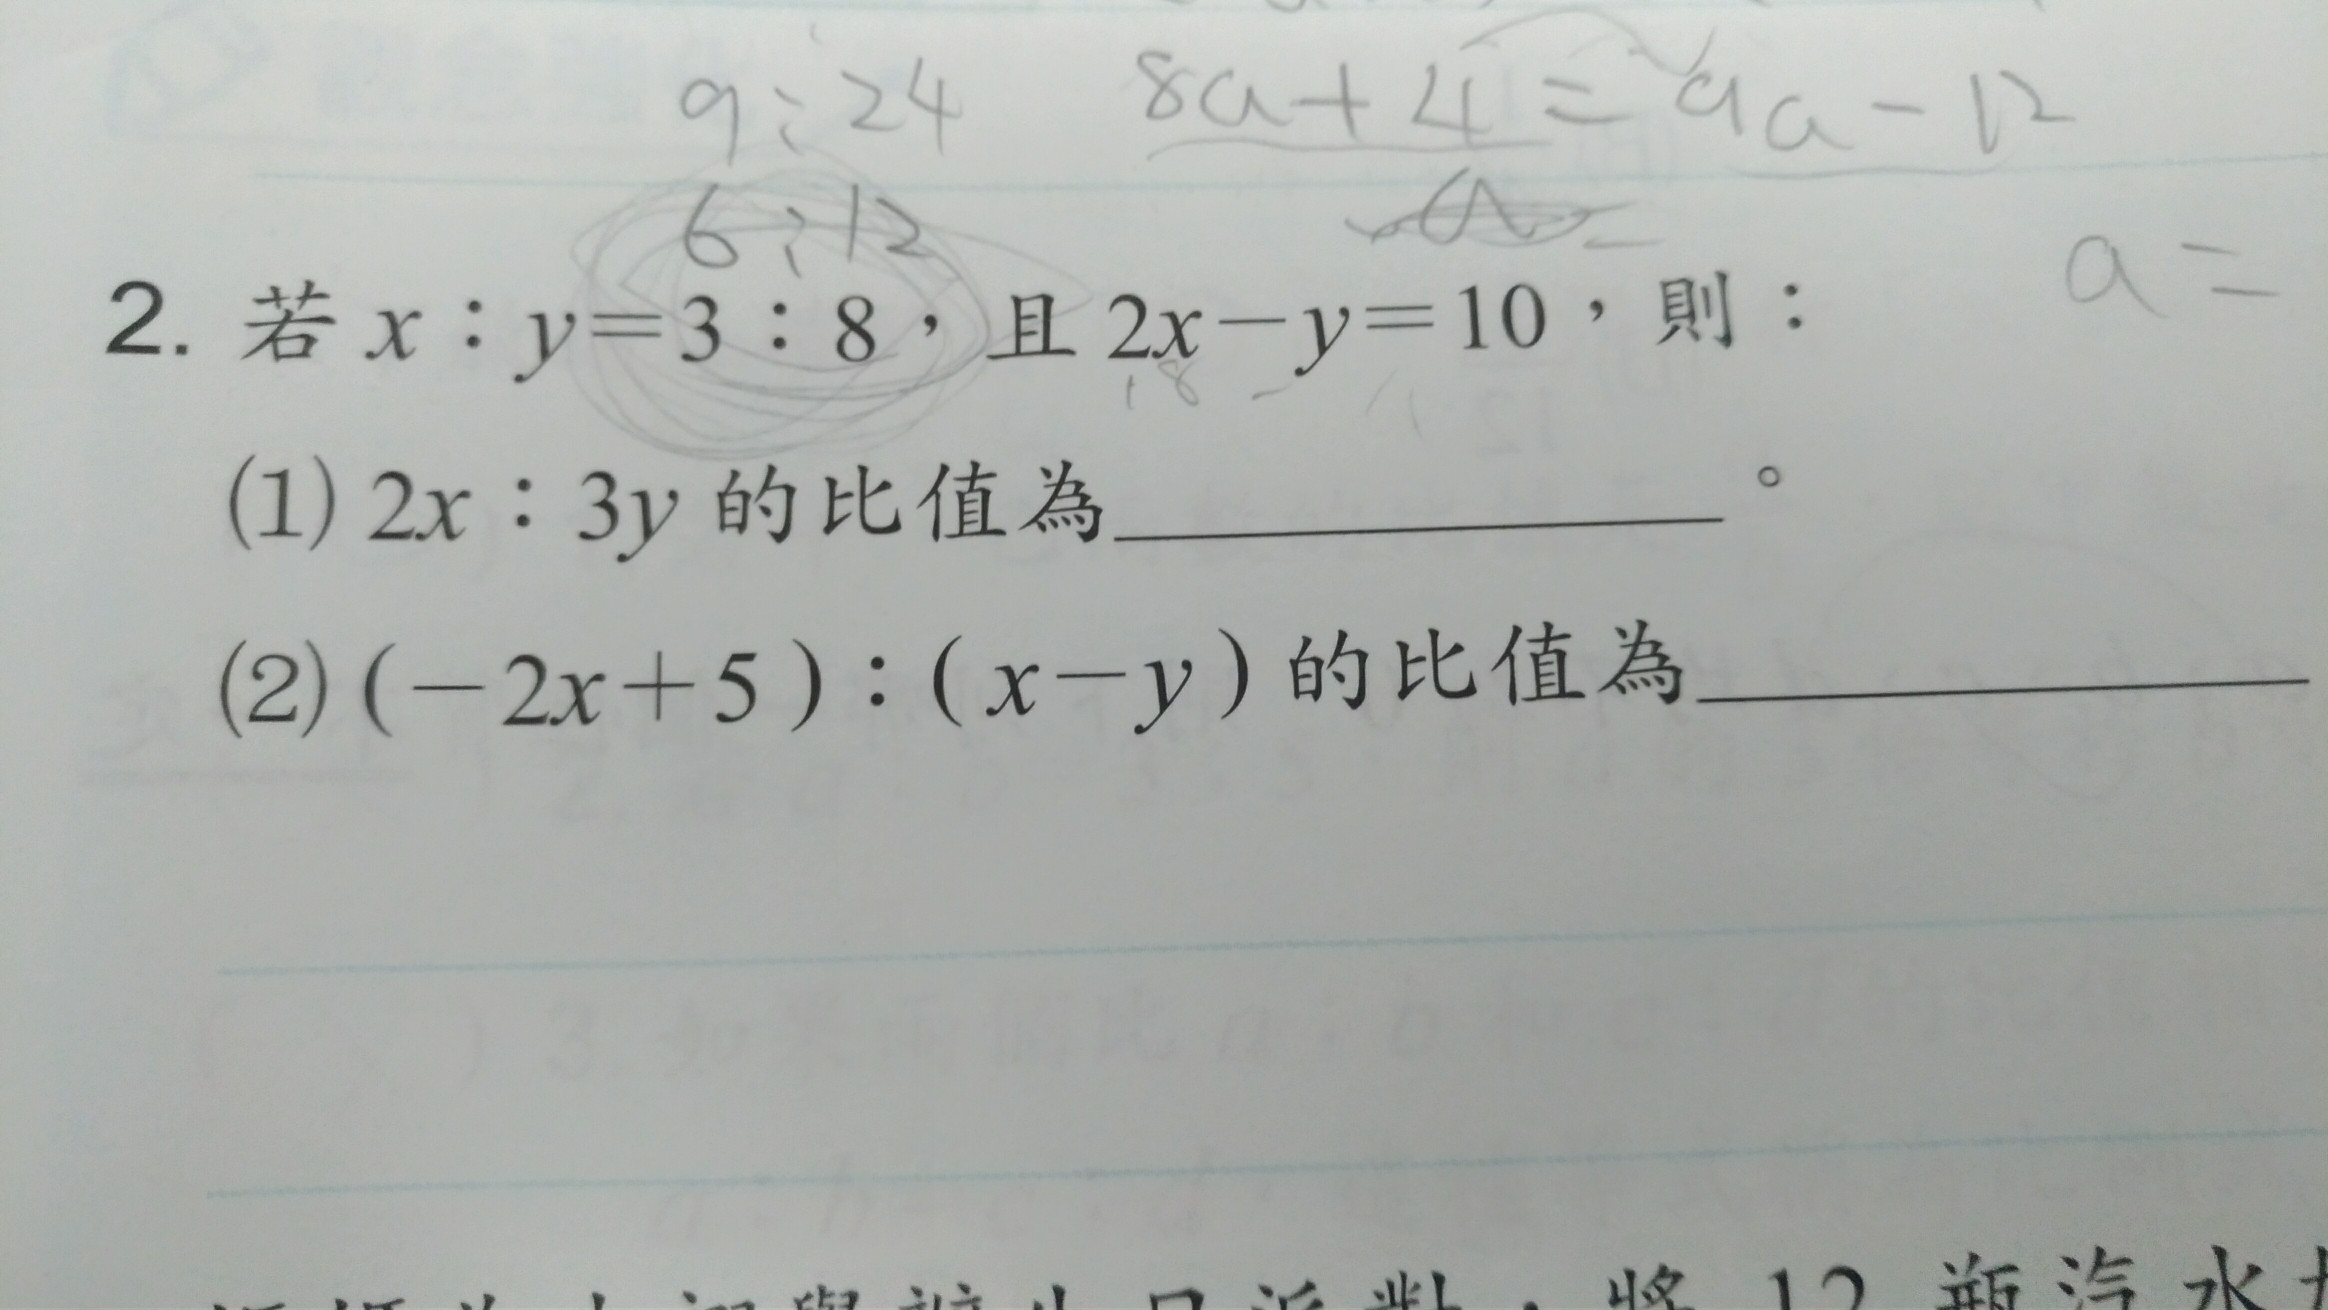 9:24 8a+4=9a-12
6:12
a=
2. 若 x:y=3:8,且 2x-y=10,則:
18-
(1) 2x:3y 的比值為__________。
(2) (-2x+5):(x-y) 的比值為__________
將 12 瓶汽水